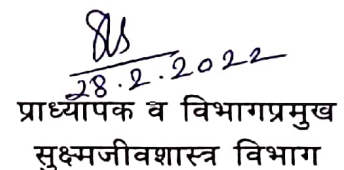 28.2.2022
प्राध्यापक व विभागप्रमुख
सुक्ष्मजीवशास्त्र विभाग